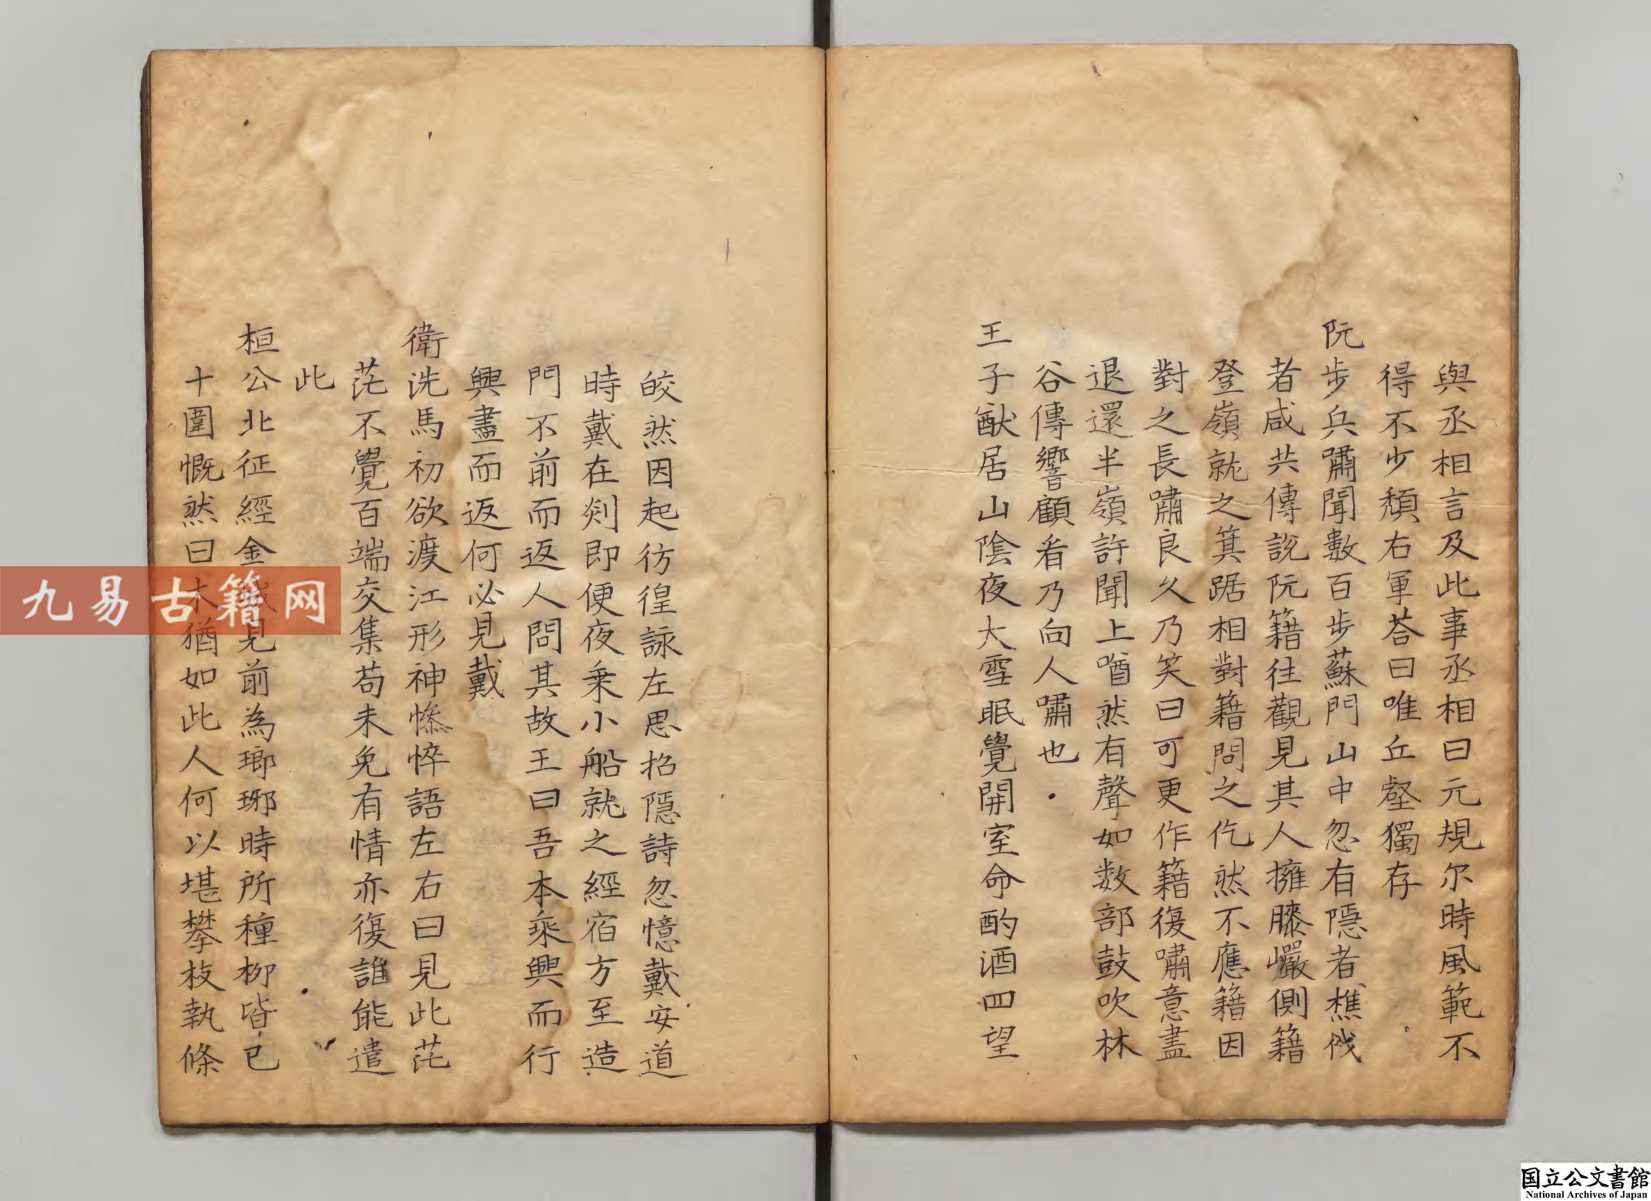 與丞相言及此事丞相曰元規尔時風範不
得不少頹右軍荅曰唯丘壑獨存
阮步兵嘯聞數百步蘇門山中忽有隱者樵伐
者咸共傳說阮籍往觀見其人擁膝巖側籍
登嶺就之箕踞相對籍問之仡然不應籍因
對之長嘯良久乃笑曰可更作籍復嘯意盡
退還半嶺許聞上㗜然有聲如数部鼓吹林
谷傳響顧看乃向人嘯也
王子猷居山陰夜大雪眠覺開室命酌酒四望
皎然因起彷徨詠左思招隱詩忽憶戴安道
時戴在剡即便夜乗小船就之經宿方至造
門不前而返人問其故王曰吾本乗興而行
興盡而返何必見戴
衛洗馬初欲渡江形神惨悴語左右曰見此茫
茫不覺百端交集苟未免有情亦復誰能遣
此
桓公北征經金城見前為瑯琊時所種柳皆已
十圍慨然曰木猶如此人何以堪攀枝執條
九易古籍网
国立公文書館
National Archives of Japan